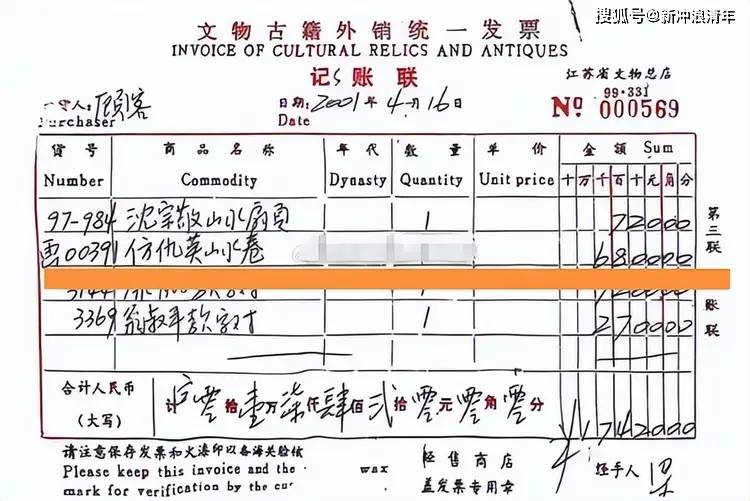 搜狐号@新冲浪清年
文物古籍外销统一发票
INVOICE OF CULTURAL RELICS AND ANTIQUES
记账联
江苏省文物总店
99·331
Nº 000569
人: 顾客
Purchaser
日期: 2001年4月16日
Date
货号 商品名称 年代 数量 单价 金额 Sum
Number Commodity Dynasty Quantity Unit price 十万千百十元角分
97-984 沈宗敬山水扇页 1 72000
画00391 仿仇英山水卷 1 680000
3144
3369 翁叔平款字对 1 270000
第三联
账联
合计人民币
(大写)
计 零拾壹万柒仟肆佰贰拾零元零角零分
¥1742000
请注意保存发票和火漆印以备海关验核
Please keep this invoice and the wax
mark for verification by the
经售商店
盖发票专用章
经手人